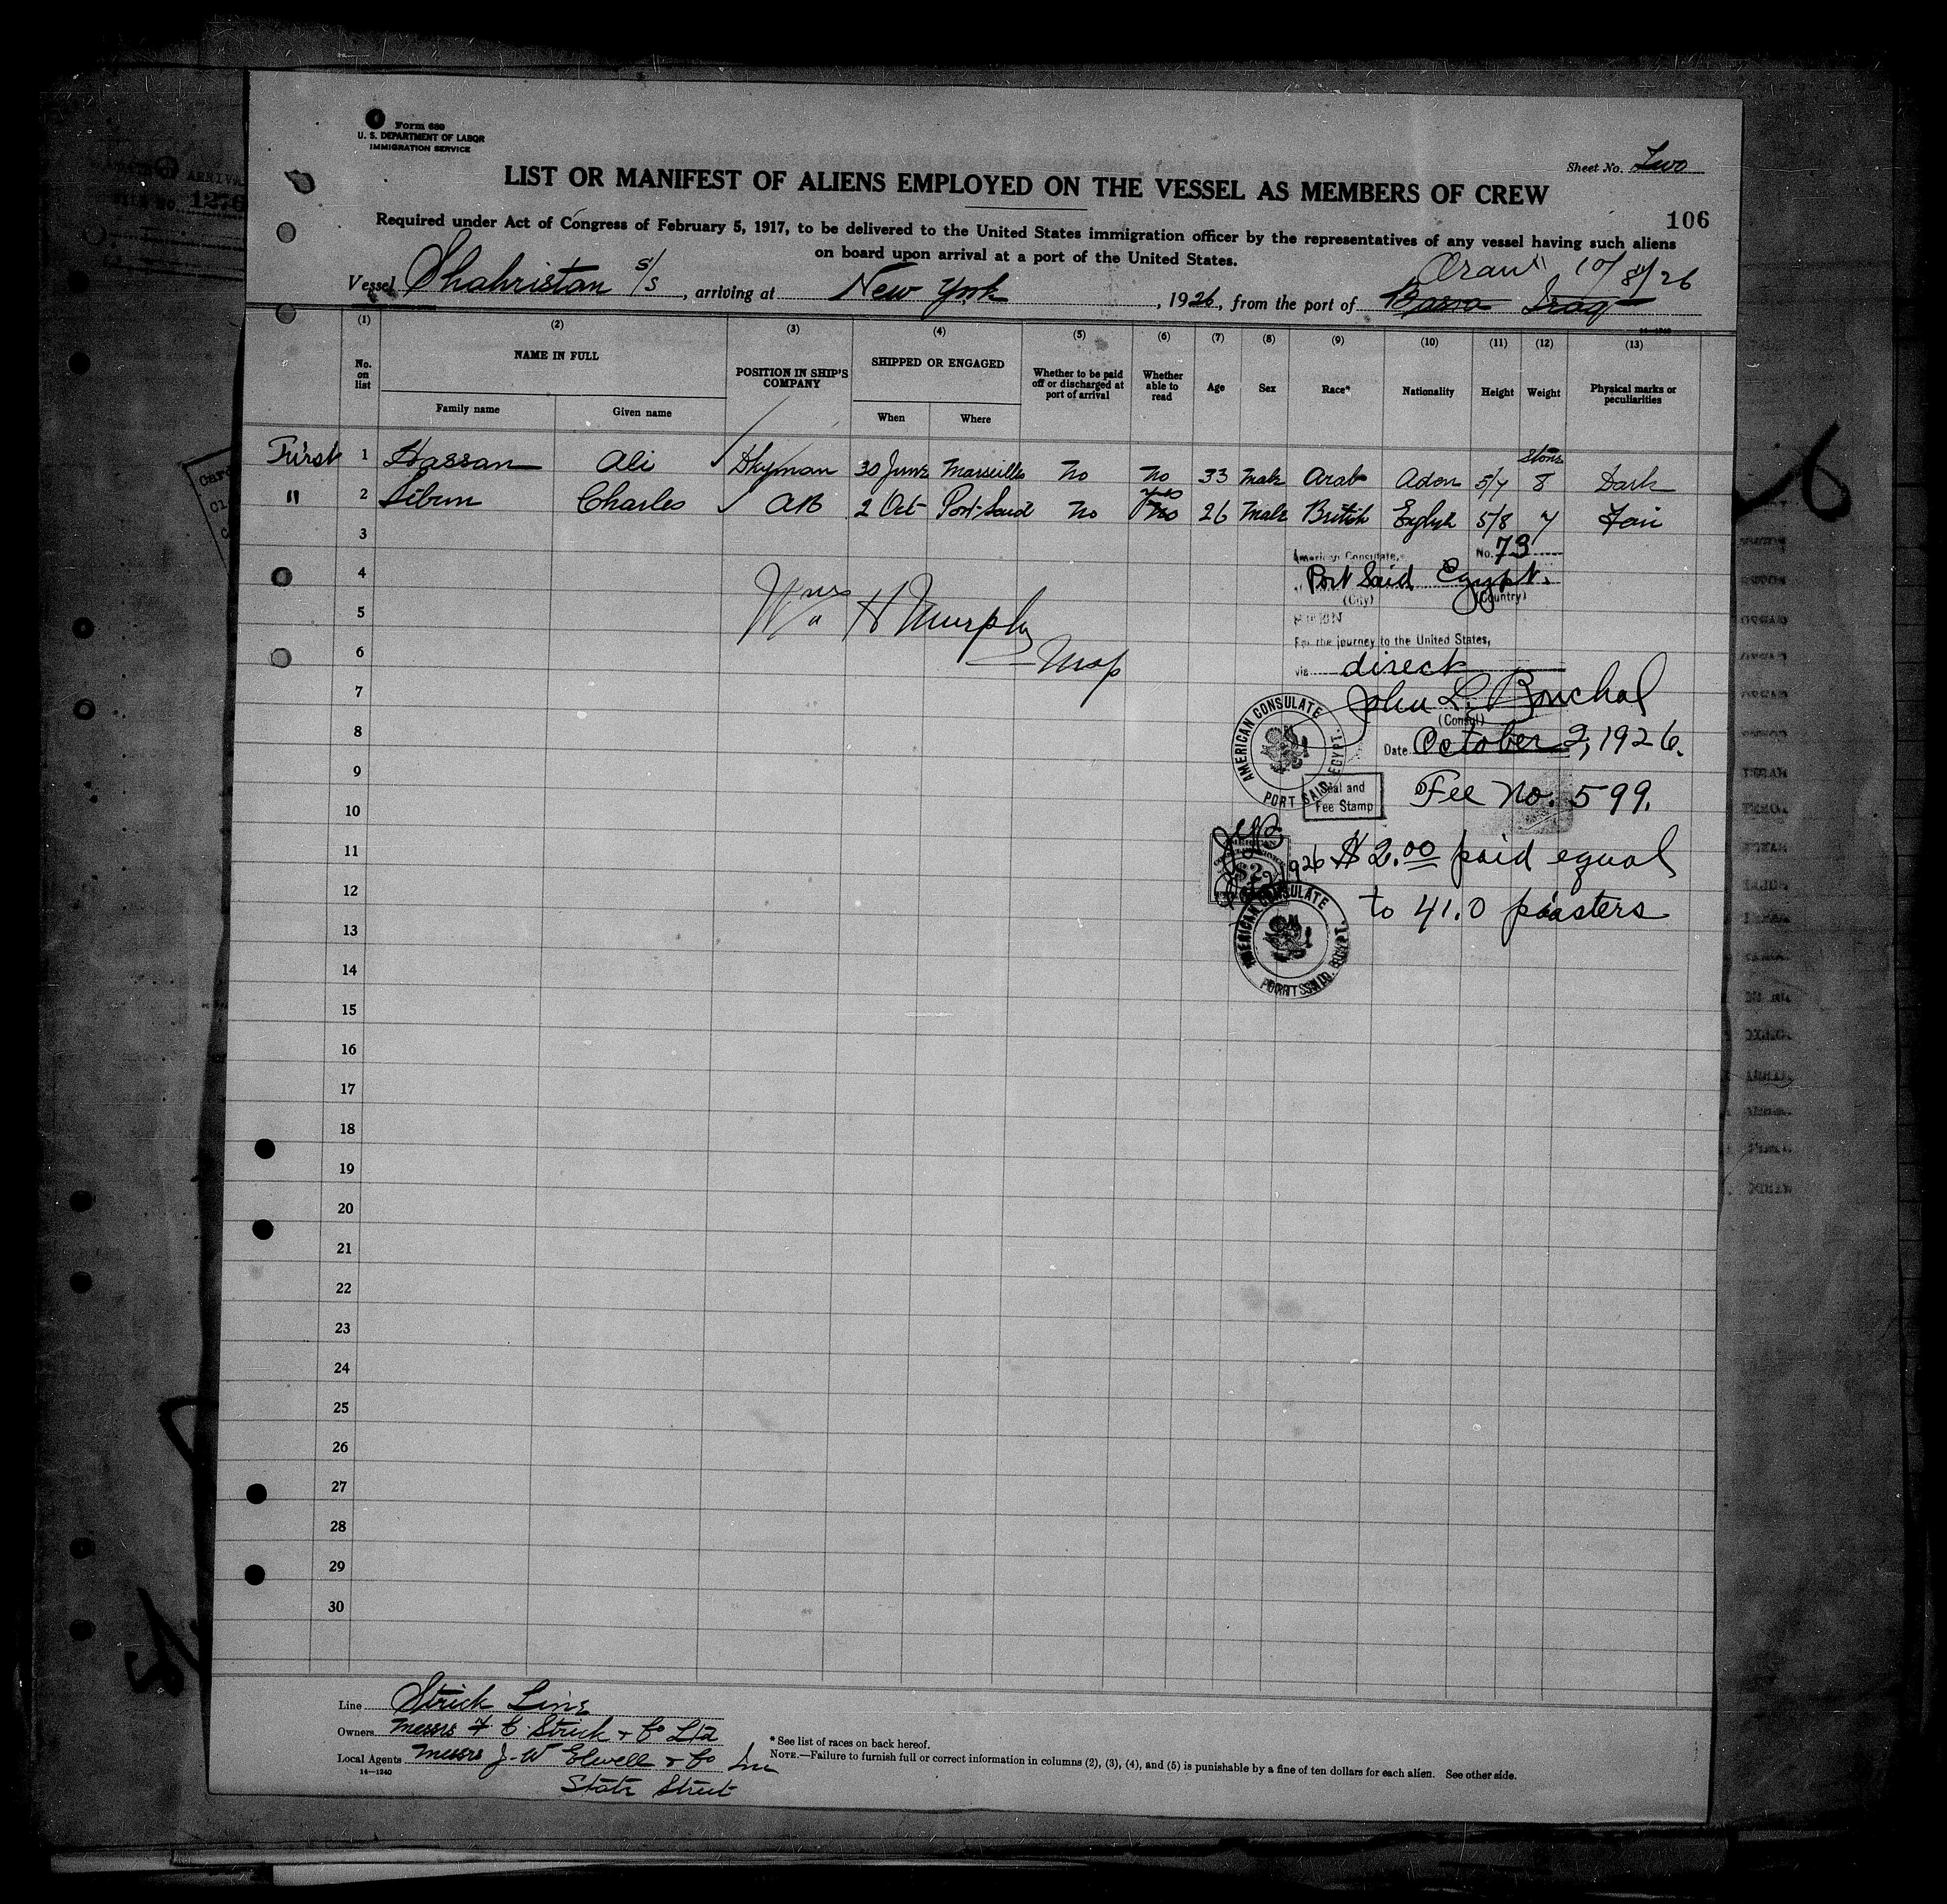 Form 680
U. S. DEPARTMENT OF LABOR
IMMIGRATION SERVICE
Sheet No. Two
LIST OR MANIFEST OF ALIENS EMPLOYED ON THE VESSEL AS MEMBERS OF CREW
106
Required under Act of Congress of February 5, 1917, to be delivered to the United States immigration officer by the representatives of any vessel having such aliens
on board upon arrival at a port of the United States.
Oran 10/8/26
Vessel Shahristan S/S, arriving at New York, 1926, from the port of Basra Iraq
14—1240
(1) (2) (3) (4) (5) (6) (7) (8) (9) (10) (11) (12) (13)
No. on list NAME IN FULL POSITION IN SHIP'S COMPANY SHIPPED OR ENGAGED Whether to be paid off or discharged at port of arrival Whether able to read Age Sex Race* Nationality Height Weight Physical marks or peculiarities
Family name Given name When Where
Stone
First 1 Hassan Ali Dkyman 30 June Marseilles No No 33 Male Arab Aden 5/7 8 Dark
" 2 Charles AB 2 Oct Port Said No yes No 26 Male British English 5/8 7 Fair
3
American Consulate, No. 73
4
Port Said Egypt.
(City) (Country)
5
Wm H Murphy
For the journey to the United States,
6
via direct
7
John L.
(Consul)
8
AMERICAN CONSULATE
PORT SAID, EGYPT.
Date October 2, 1926.
9
Seal and
Fee Stamp
Fee No. 599.
10
11
$2
1926 $2.00 paid equal
12
AMERICAN CONSULATE
PORT SAID, EGYPT.
to 41.0 piasters
13
14
15
16
17
18
19
20
21
22
23
24
25
26
27
28
29
30
Line Strick Line
Owners Messrs F. C. Strick & Co Ltd
Local Agents Messrs J. W Elwell & Co Inc
14—1240
State Street
* See list of races on back hereof.
NOTE.—Failure to furnish full or correct information in columns (2), (3), (4), and (5) is punishable by a fine of ten dollars for each alien. See other side.